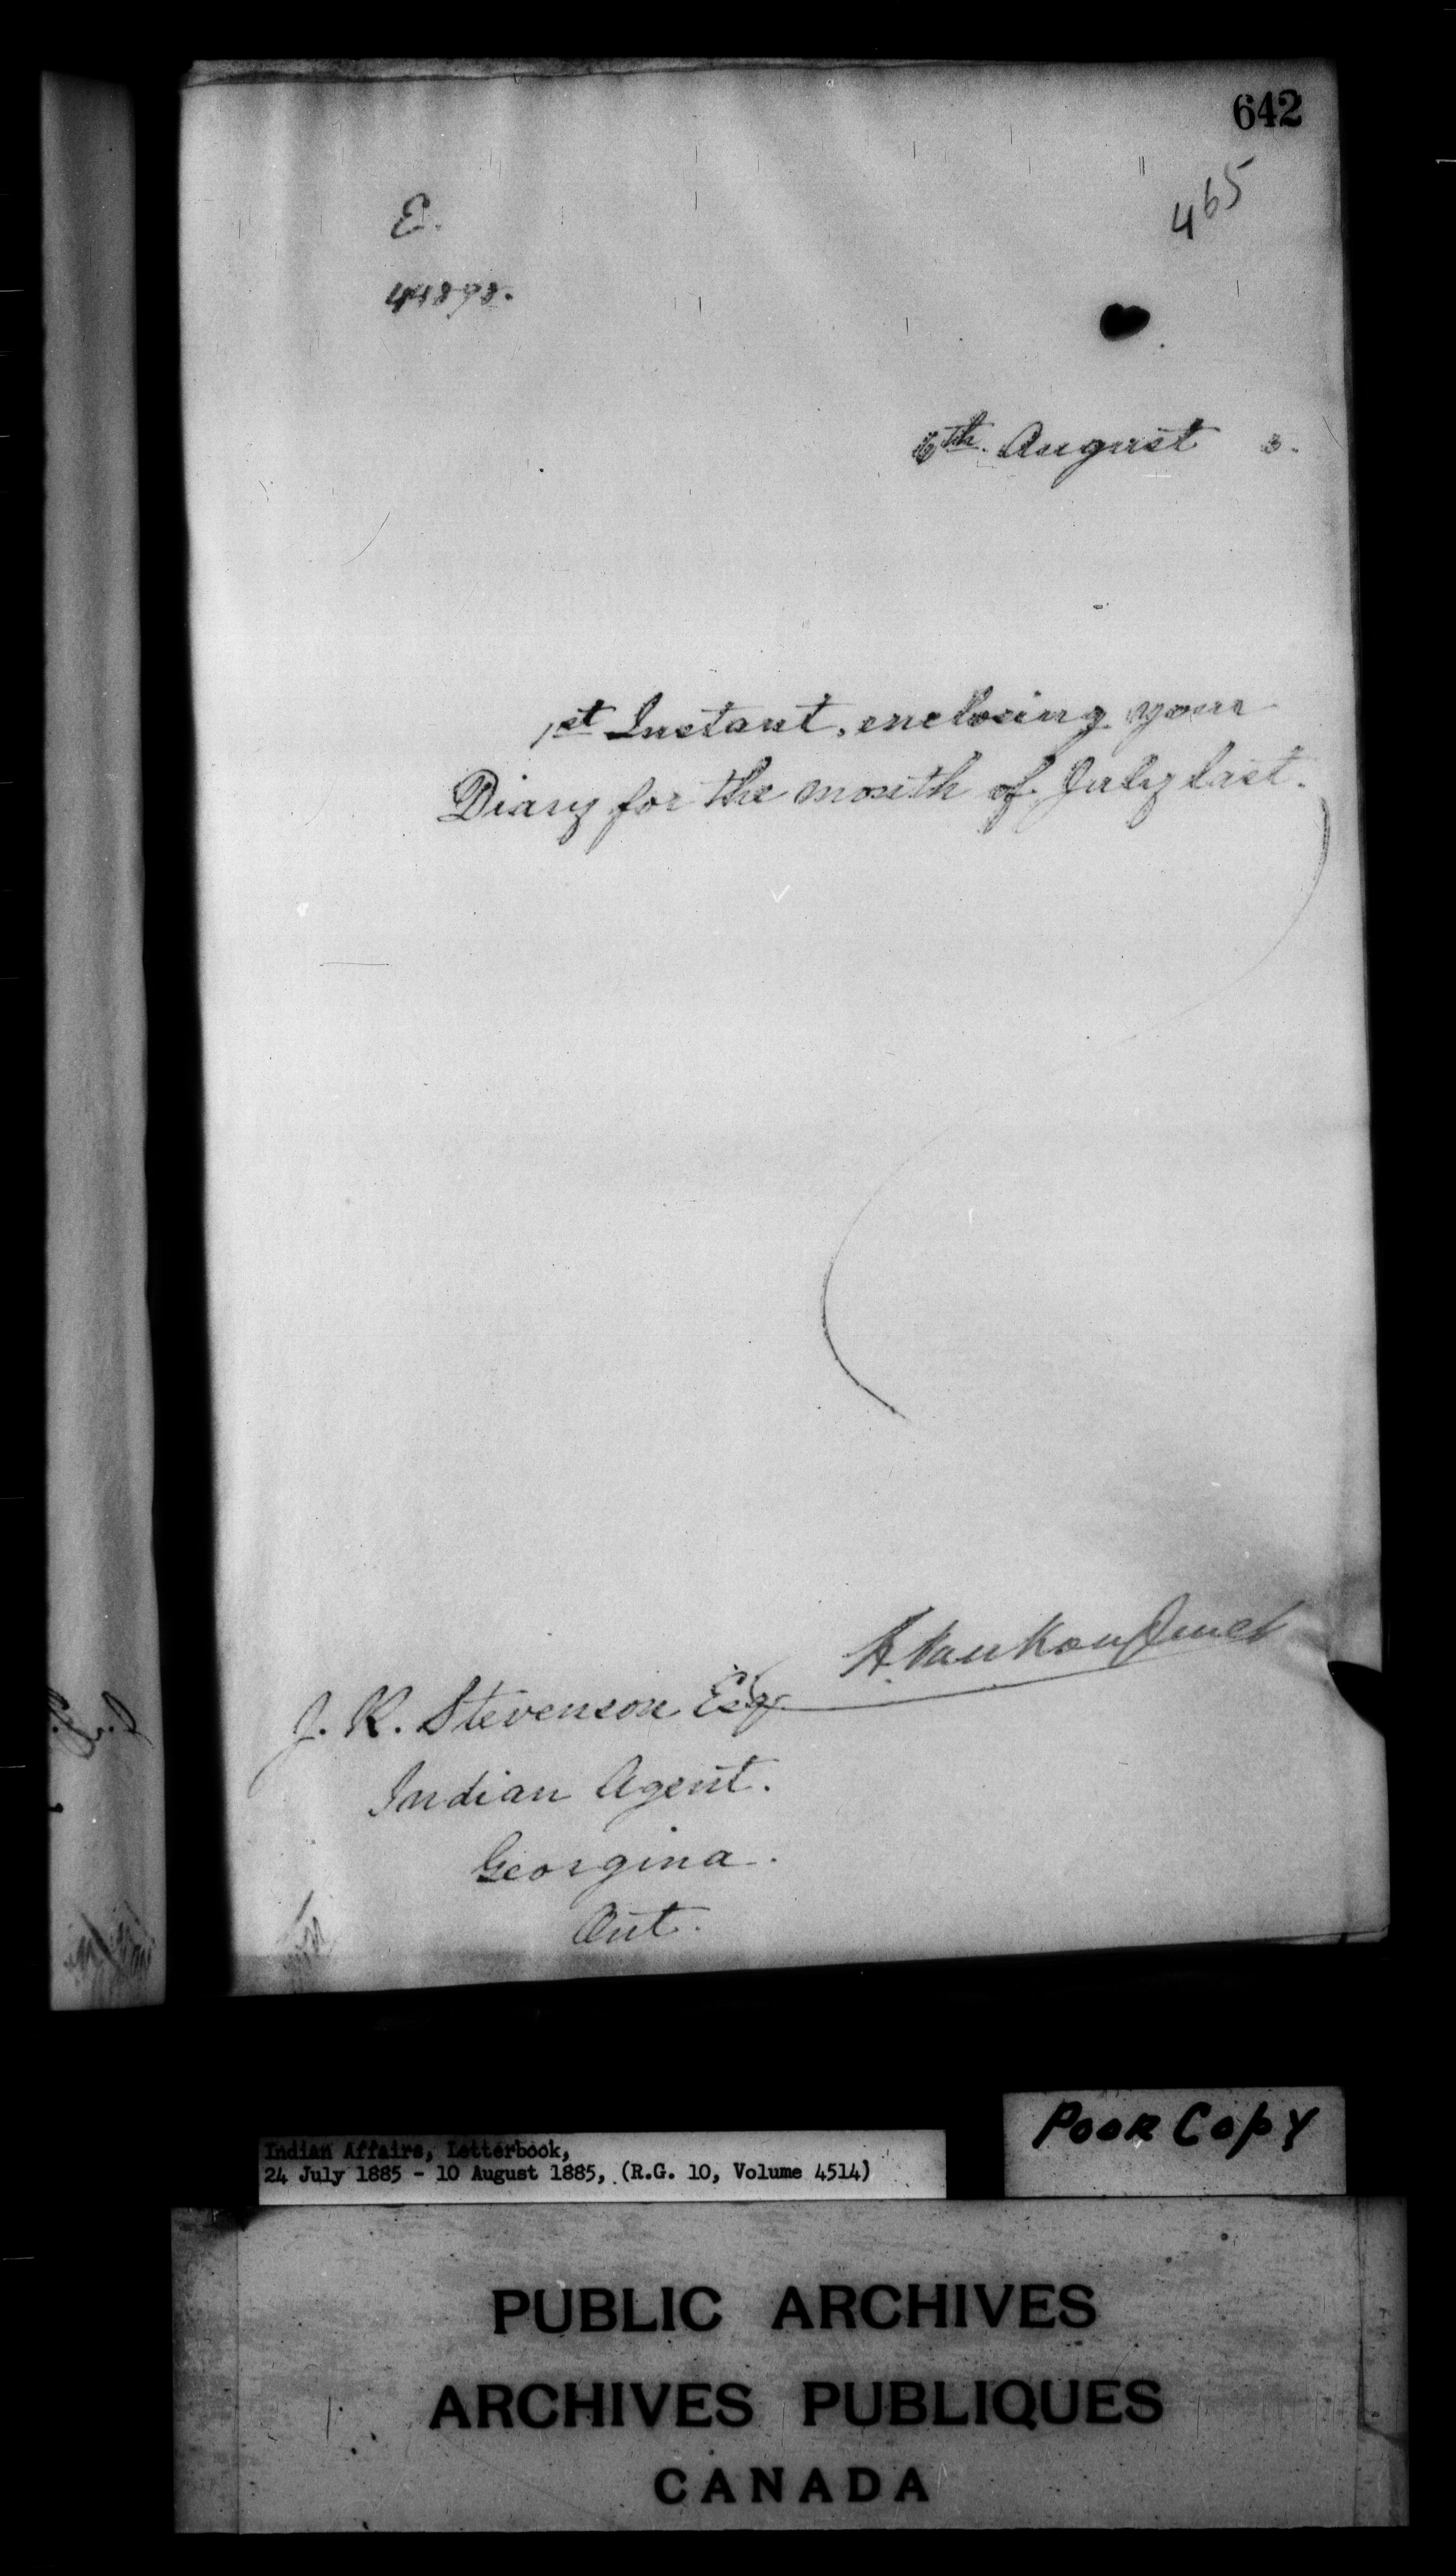 642
465
E.
44898.
6th. August 5.
1st Instant, enclosing your
Diary for the month of July last.
L. VanKoughnet
J. R. Stevenson Esq
Indian Agent.
Georgina.
Ont.
Poor Copy
Indian Affairs, Letterbook,
24 July 1885 - 10 August 1885, (R.G. 10, Volume 4514)
PUBLIC ARCHIVES
ARCHIVES PUBLIQUES
CANADA